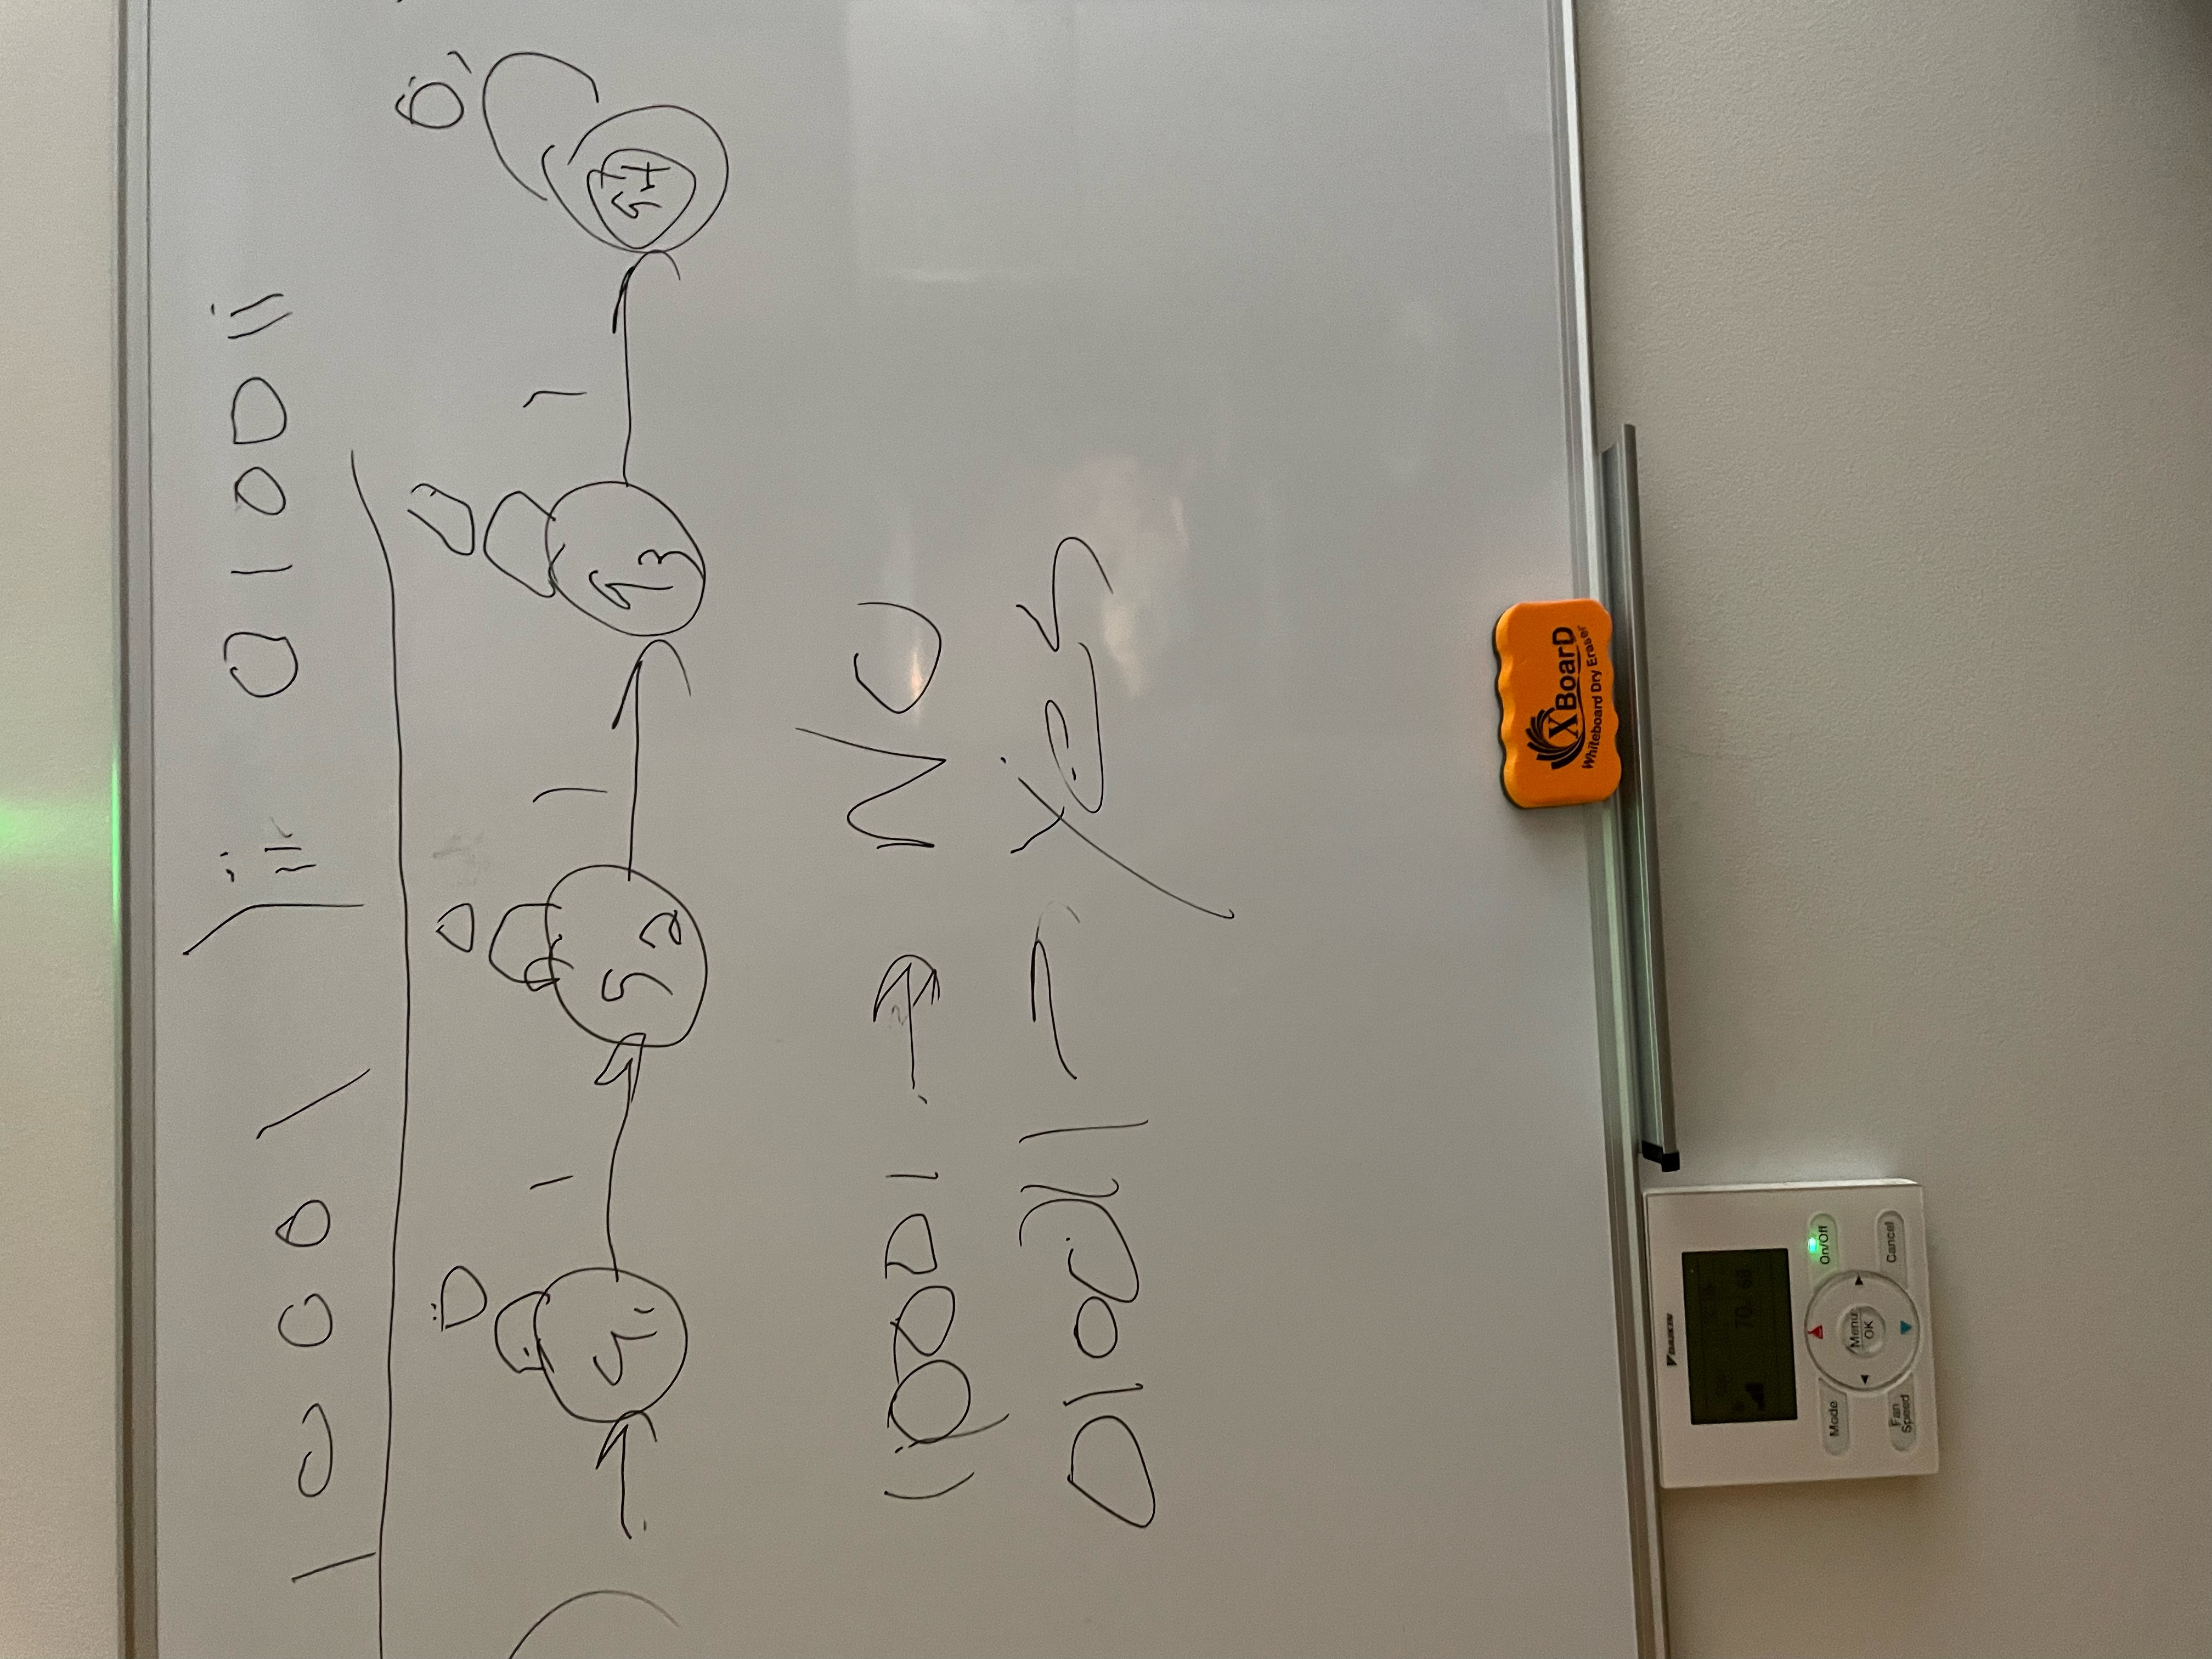 10001 ii 010011
0 0 0 0,
1 1 1
q1 q2 q3 q4
10001 → NO
010011 → Yes
XBoarD
Whiteboard Dry Eraser
DAIKIN
70 68
Mode On/Off
Menu
OK
Fan
Speed
Cancel